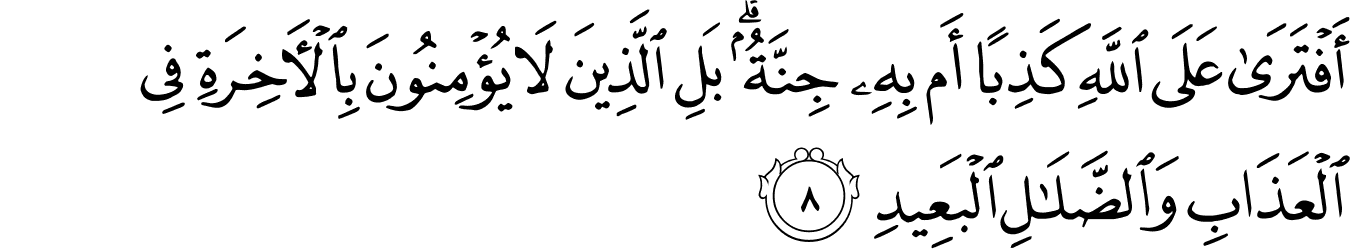 أَفْتَرَىٰ عَلَى ٱللَّهِ كَذِبًا أَم بِهِۦ جِنَّةٌۢ ۗ بَلِ ٱلَّذِينَ لَا يُؤْمِنُونَ بِٱلْـَٔاخِرَةِ فِى
ٱلْعَذَابِ وَٱلضَّلَـٰلِ ٱلْبَعِيدِ ٨